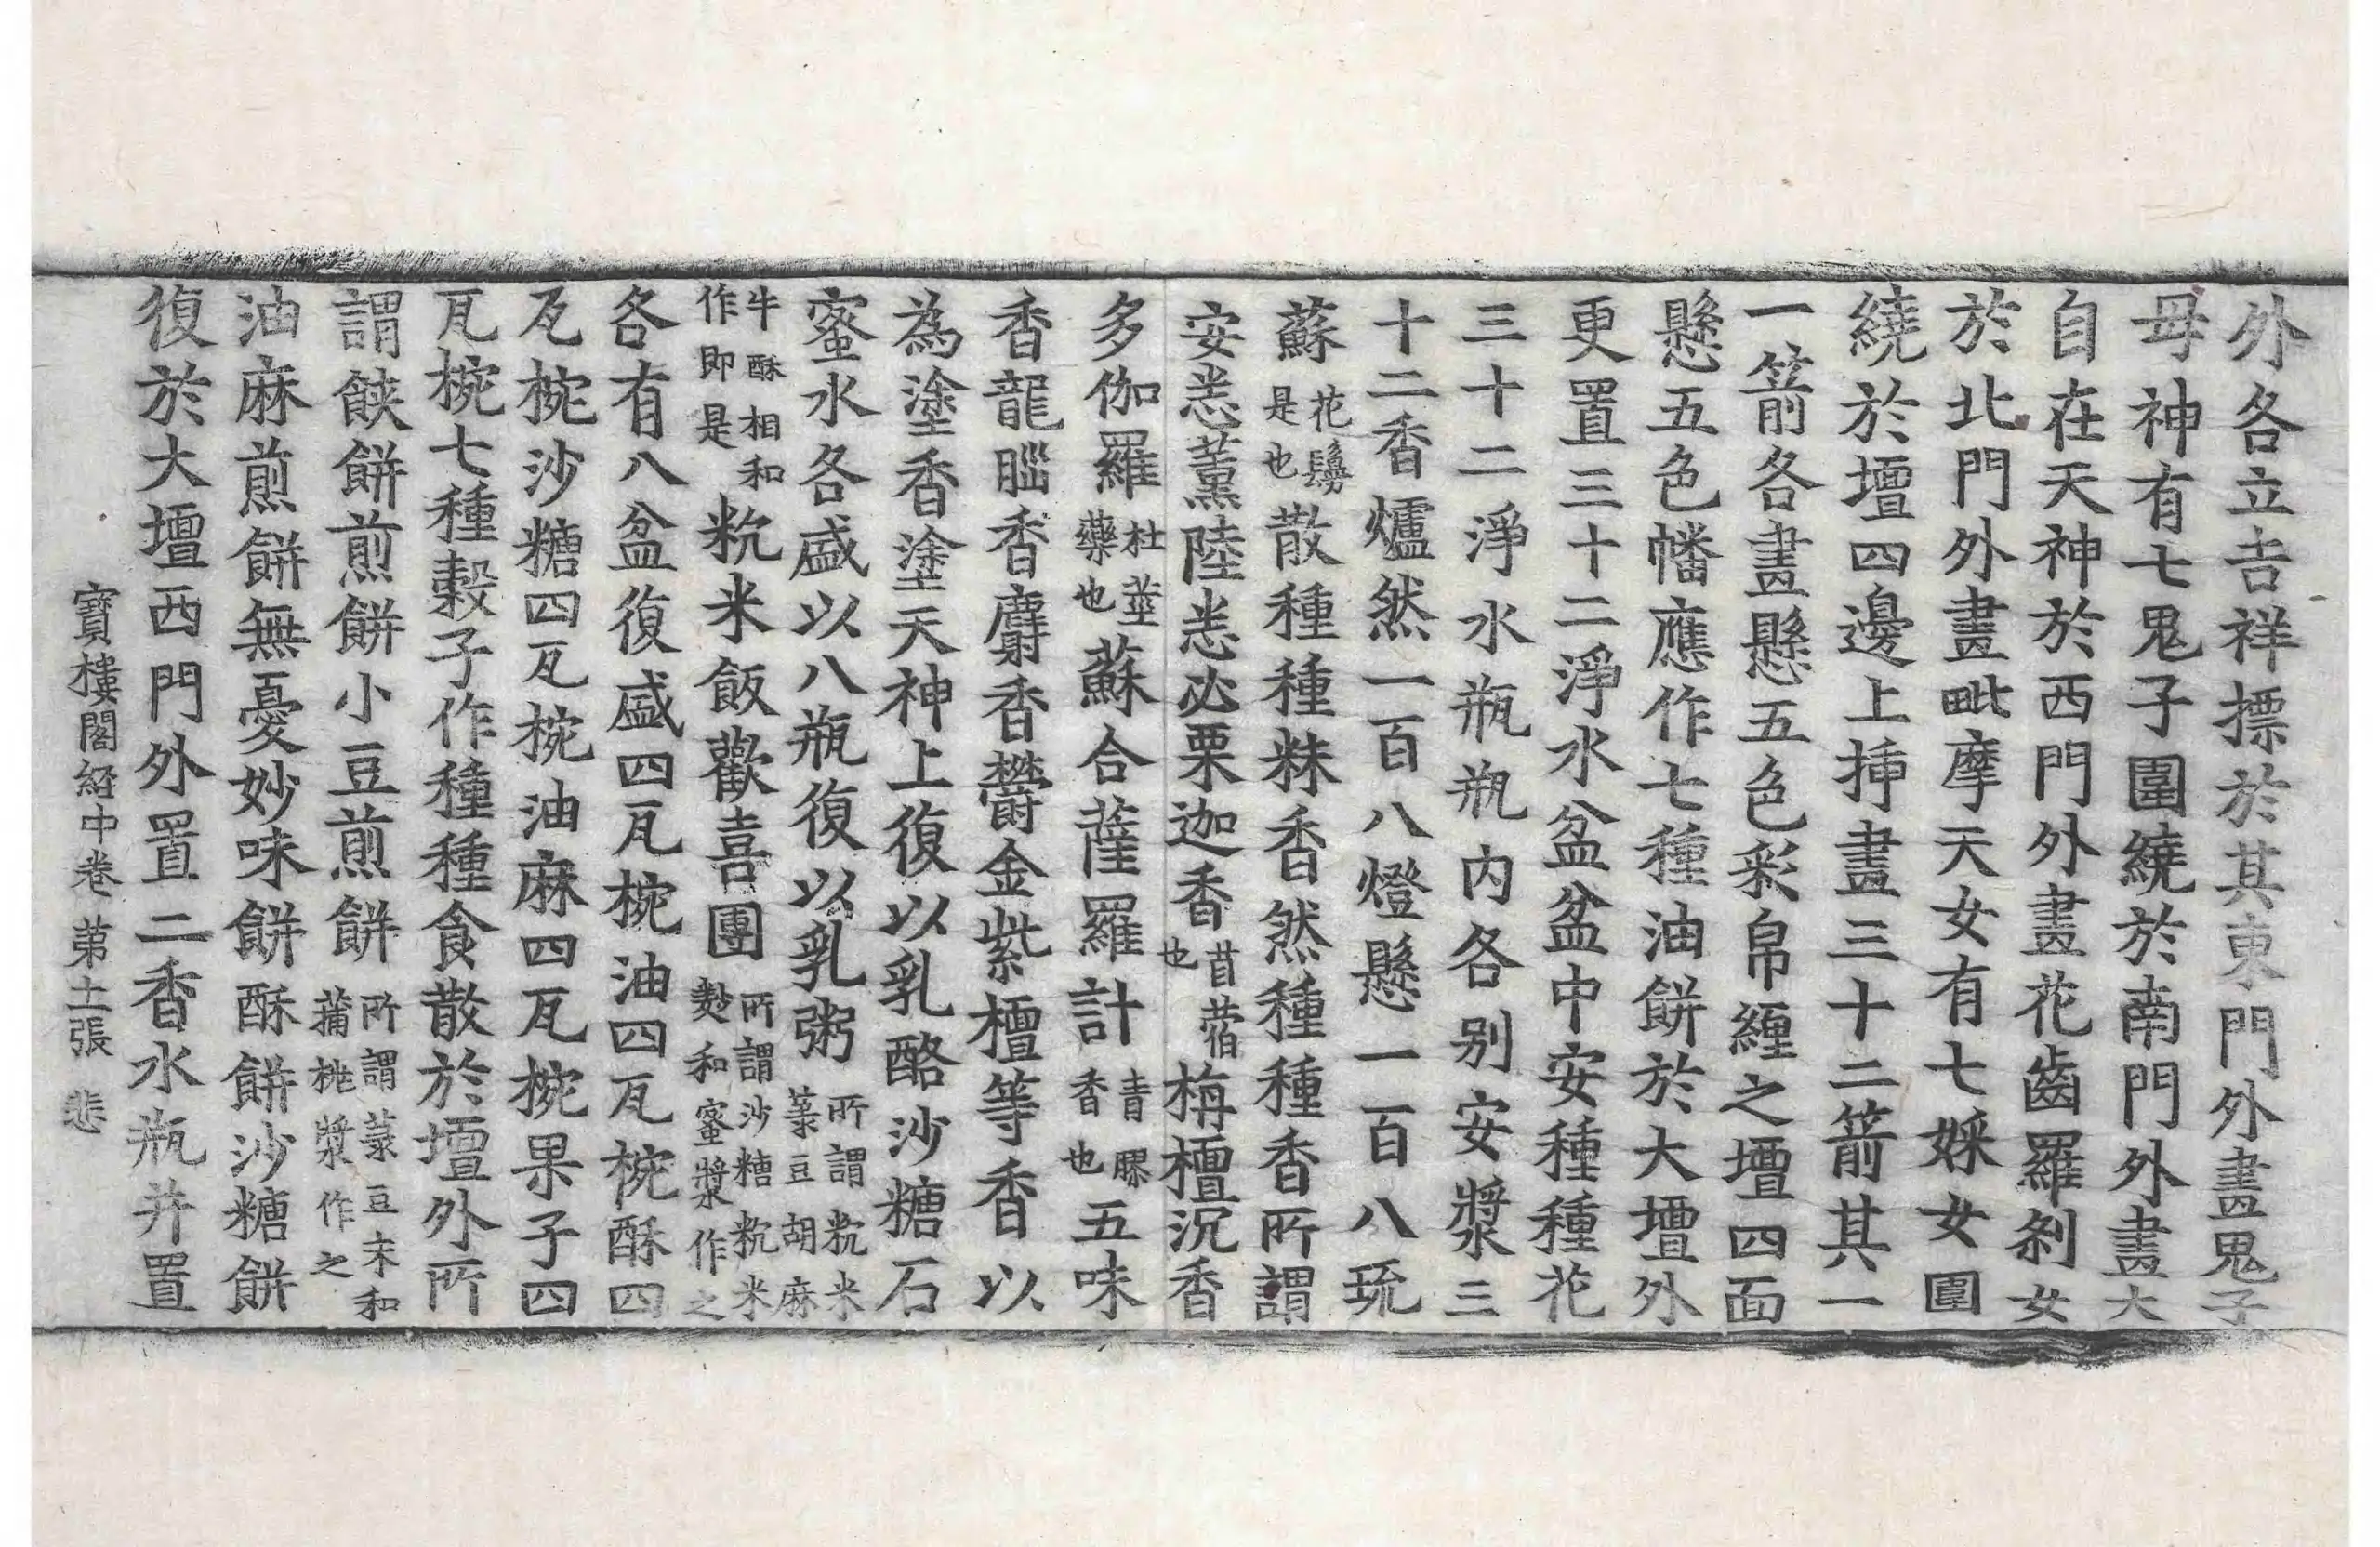 外各立吉祥摽於其東門外畫鬼子
母神有七鬼子圍繞於南門外畫大
自在天神於西門外畫花齒羅剎女
於北門外畫毗摩天女有七婇女圍
繞於壇四邊上揷畫三十二箭其一
一箭各畫懸五色彩帛纏之壇四面
懸五色幡應作七種油餅於大壇外
更置三十二淨水盆盆中安種種花
三十二淨水瓶瓶內各別安漿三
十二香爐然一百八燈懸一百八琉
蘇花鬘是也散種種粖香然種種香所謂
安悉薰陸悉必栗迦香苜蓿也栴檀沉香
多伽羅杜莖藥也蘇合薩羅計青膠香也五味
香龍𦛁香麝香欝金紫檀等香以
為塗香塗天神上復以乳酪沙糖石
蜜水各盛以八瓶復以乳粥所謂粇米菉豆胡麻
牛酥相和作即是粇米飯歡喜團所謂沙糖粇米麨和蜜漿作之
各有八盆復盛四瓦椀油四瓦椀酥四
瓦椀沙糖四瓦椀油麻四瓦椀果子四
瓦椀七種穀子作種種食散於壇外所
謂餗餅煎餅小豆煎餅所謂菉豆末和蒲桃漿作之
油麻煎餅無憂妙味餅酥餅沙糖餅
復於大壇西門外置二香水瓶并置
寶樓閣経中卷 苐十二張 悲